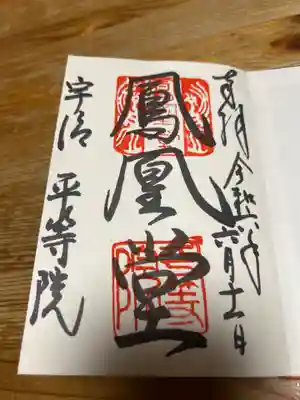 奉拝 令和六年六月十一日
鳳凰堂
宇治 平等院